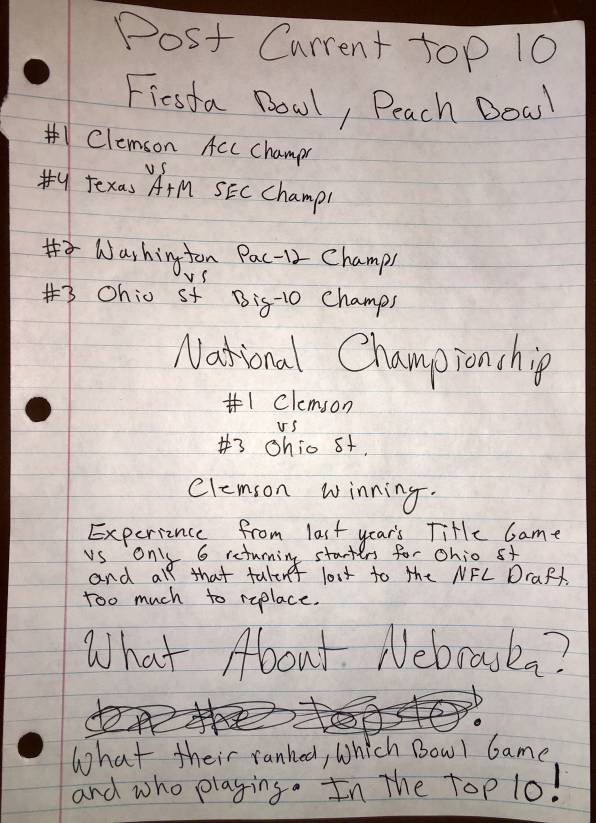 Post Current Top 10
Fiesta Bowl, Peach Bowl
#1 Clemson ACC Champs
vs
#4 Texas A+M SEC Champs
#2 Washington Pac-12 Champs
vs
#3 Ohio St Big-10 Champs
National Championship
#1 Clemson
vs
#3 Ohio St.
Clemson winning.
Experience from last year's Title Game
vs Only 6 returning starters for Ohio St
and all that talent lost to the NFL Draft.
too much to replace.
What About Nebraska?
What their ranked, which Bowl Game
and who playing. In The Top 10!